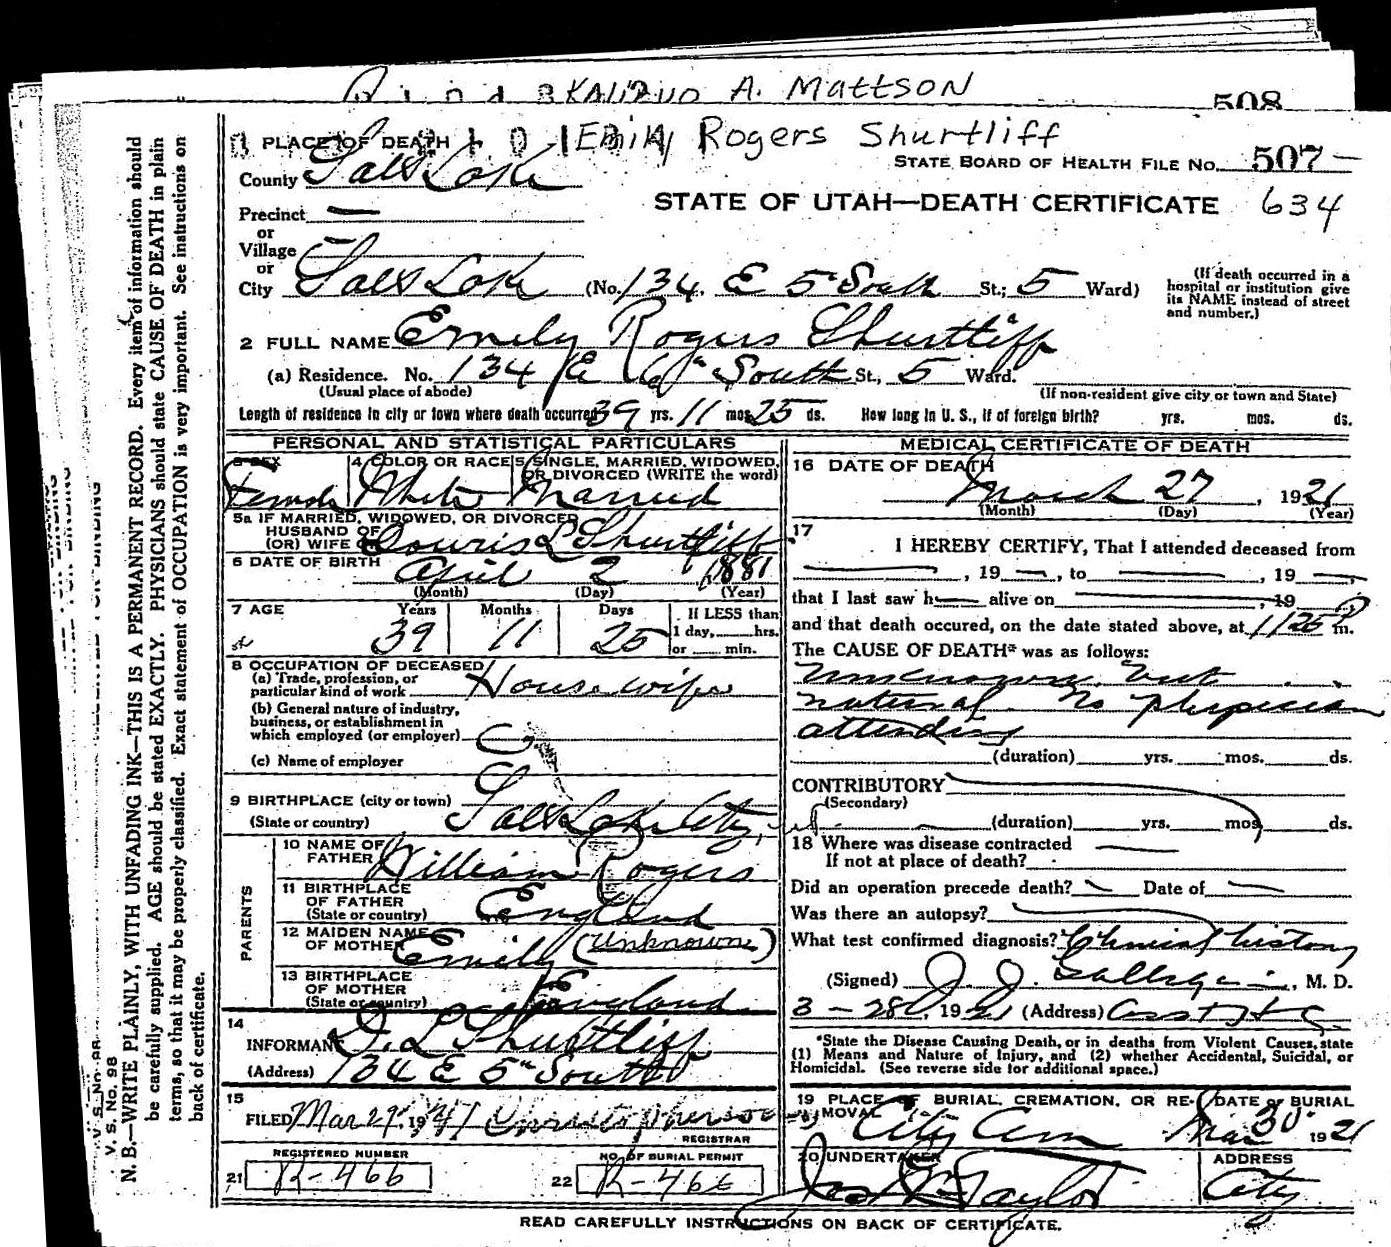 A. Mattson
508
Emily Rogers Shurtliff
1 PLACE OF DEATH
STATE BOARD OF HEALTH FILE No. 507
County Salt Lake
STATE OF UTAH—DEATH CERTIFICATE 634
Precinct —
or
Village —
or
City Salt Lake (No. 134 E 5" South St.; 5 Ward)
(If death occurred in a hospital or institution give its NAME instead of street and number.)
2 FULL NAME Emily Rogers Shurtliff
(a) Residence. No. 134 E 6" South St., 5 Ward.
(Usual place of abode)
(If non-resident give city or town and State)
Length of residence in city or town where death occurred 39 yrs. 11 mos. 25 ds. How long in U. S., if of foreign birth? yrs. mos. ds.
PERSONAL AND STATISTICAL PARTICULARS
3 SEX
Female
4 COLOR OR RACE
White
5 SINGLE, MARRIED, WIDOWED, OR DIVORCED (WRITE the word)
Married
5a IF MARRIED, WIDOWED, OR DIVORCED
HUSBAND OF
(OR) WIFE L Shurtliff
6 DATE OF BIRTH April 2 1881
(Month) (Day) (Year)
7 AGE Years Months Days If LESS than
39 11 25 1 day, hrs.
or min.
8 OCCUPATION OF DECEASED
(a) Trade, profession, or particular kind of work Housewife
(b) General nature of industry, business, or establishment in which employed (or employer)
(c) Name of employer
9 BIRTHPLACE (city or town)
(State or country) Salt Lake City,
PARENTS
10 NAME OF FATHER William Rogers
11 BIRTHPLACE OF FATHER (State or country) England
12 MAIDEN NAME OF MOTHER Emily (Unknown)
13 BIRTHPLACE OF MOTHER (State or country) England
14
INFORMANT L Shurtliff
(Address) 134 E 5" South
15
FILED Mar 29, 1921
REGISTRAR
REGISTERED NUMBER
21 R-466
NO. OF BURIAL PERMIT
22 R-466
MEDICAL CERTIFICATE OF DEATH
16 DATE OF DEATH
March 27, 1921
(Month) (Day) (Year)
17
I HEREBY CERTIFY, That I attended deceased from
, 19 —, to , 19 —,
that I last saw h— alive on , 19
and that death occured, on the date stated above, at 1125 P m.
The CAUSE OF DEATH* was as follows:
Unknown but
natural. No physician
attending
(duration) yrs. mos. ds.
CONTRIBUTORY
(Secondary)
(duration) yrs. mos. ds.
18 Where was disease contracted
If not at place of death?
Did an operation precede death? Date of
Was there an autopsy?
What test confirmed diagnosis? Clinical history
(Signed) J. J. , M. D.
3 - 28, 1921 (Address)
*State the Disease Causing Death, or in deaths from Violent Causes, state
(1) Means and Nature of Injury, and (2) whether Accidental, Suicidal, or
Homicidal. (See reverse side for additional space.)
19 PLACE OF BURIAL, CREMATION, OR REMOVAL
City Cem
DATE of BURIAL
Mar 30 1921
20 UNDERTAKER
Taylor
ADDRESS
City
READ CAREFULLY INSTRUCTIONS ON BACK OF CERTIFICATE.
N. B.—WRITE PLAINLY, WITH UNFADING INK—THIS IS A PERMANENT RECORD. Every item of information should
be carefully supplied. AGE should be stated EXACTLY. PHYSICIANS should state CAUSE OF DEATH in plain
terms, so that it may be properly classified. Exact statement of OCCUPATION is very important. See instructions on
back of certificate.
V. S. No. 98